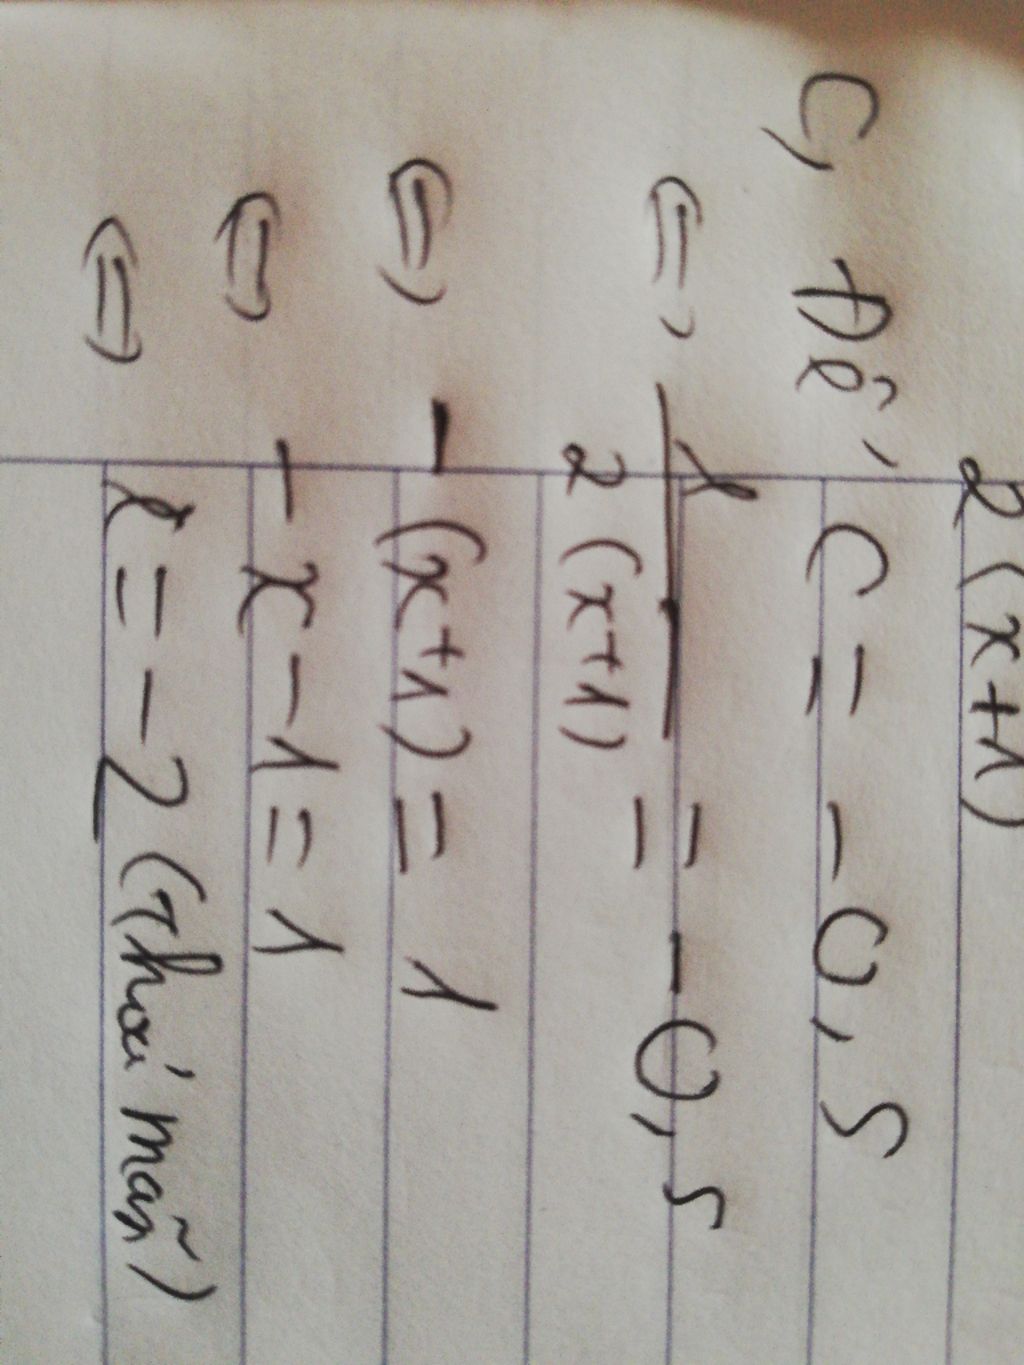 2(x+1)
C, Để C = -0,5
⇔ 1/2(x+1) = -0,5
⇔ -(x+1) = 1
⇔ -x-1=1
⇔ x=-2 (Thoả mãn)